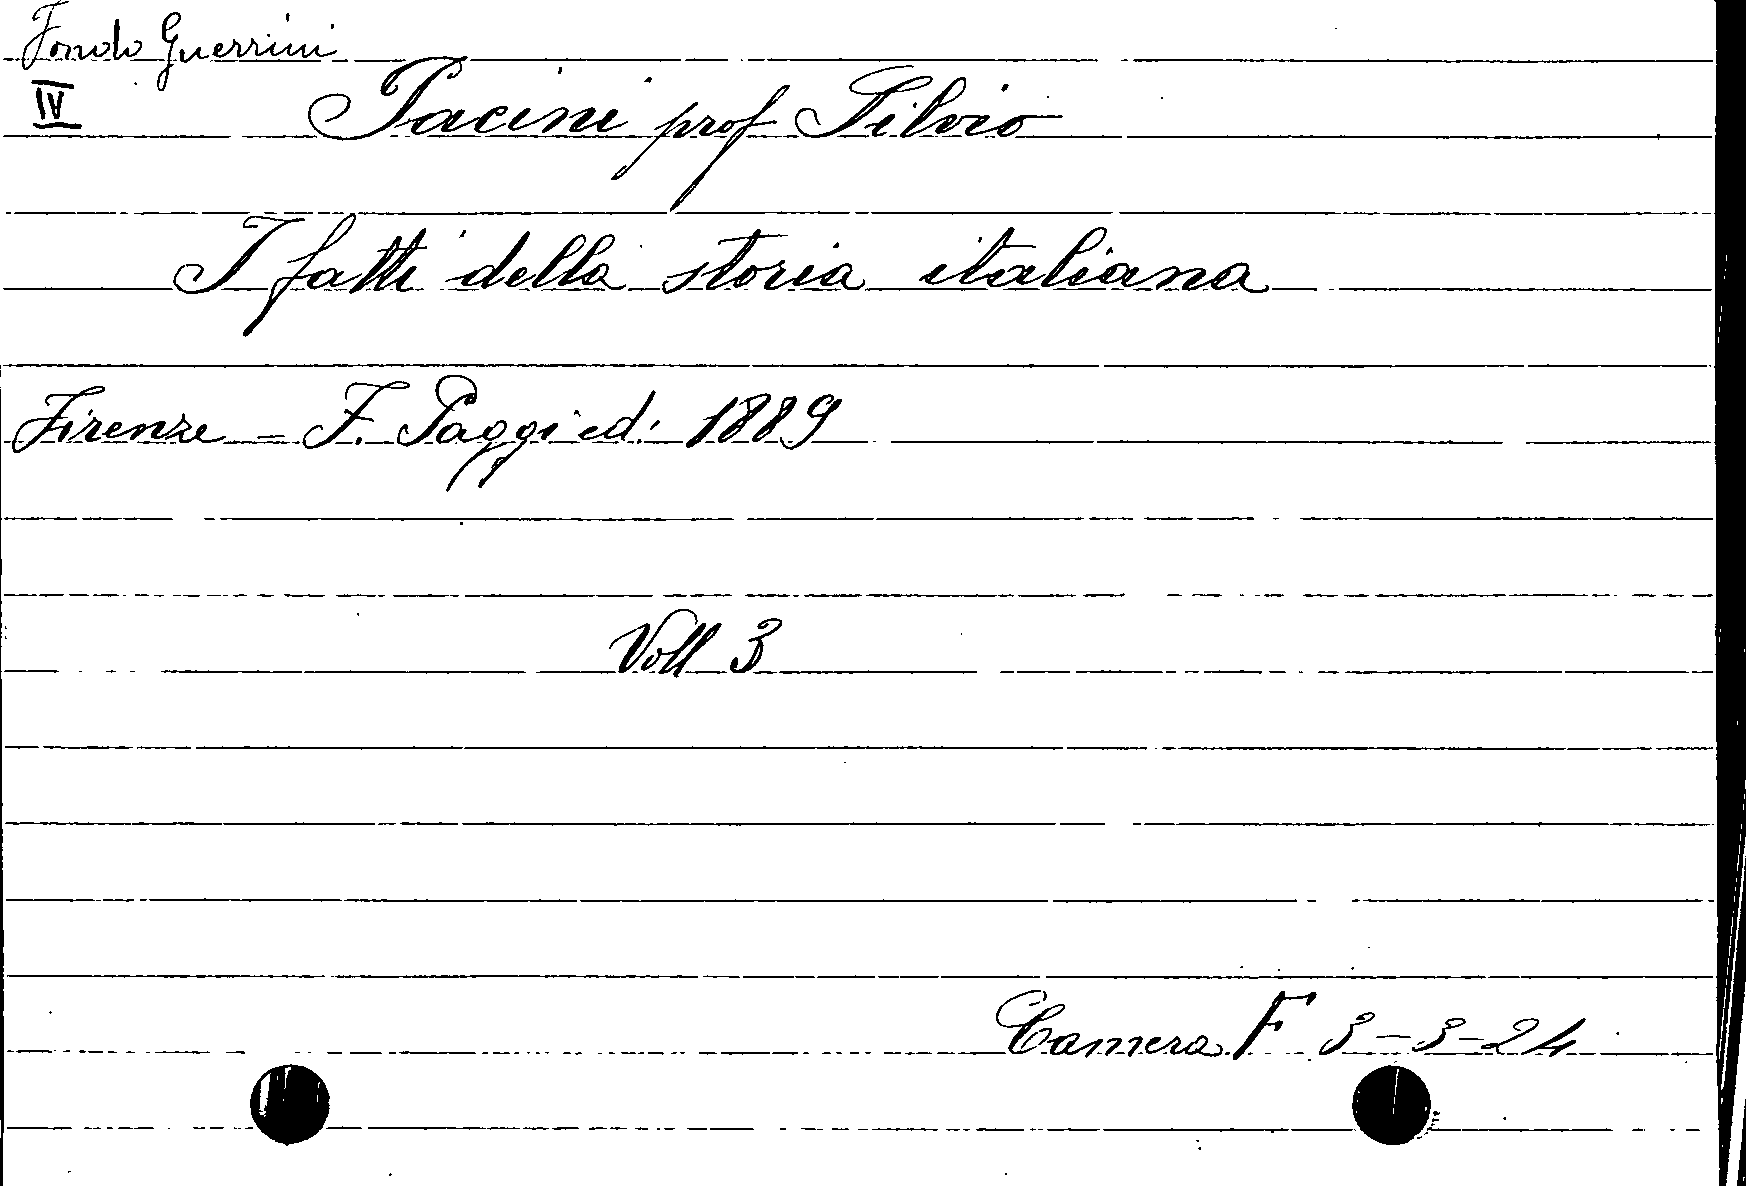 Fondo Guerrini
IV
Pacini prof Silvio
I fatti della storia italiana
Firenze - F. Paggi ed. 1889
Voll 3
Camera F 3-3-24